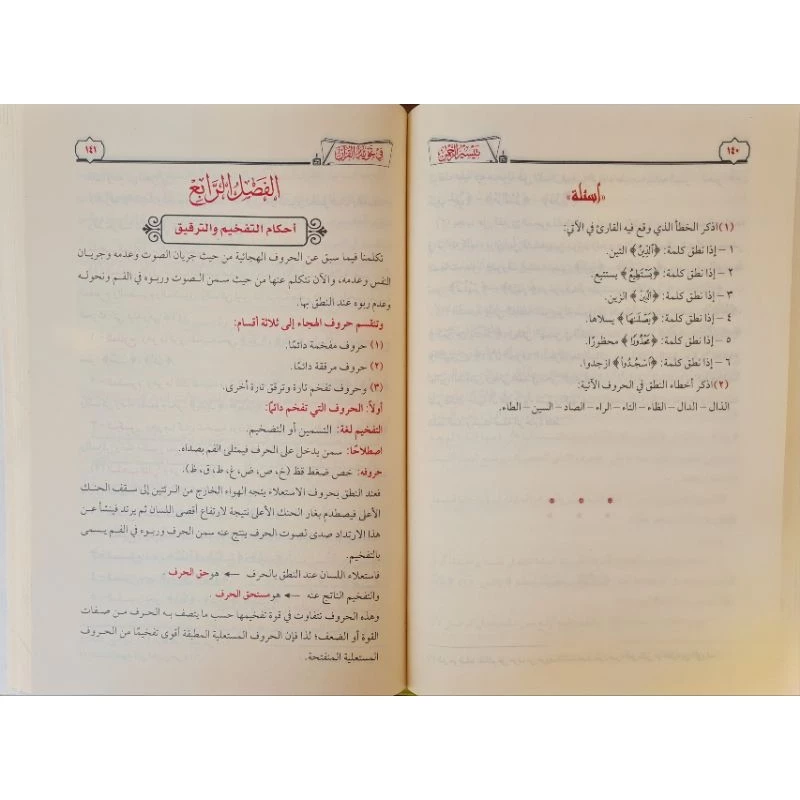 ١٤٠
تيسير الرحمن
«أسئلة»
(١) اذكر الخطأ الذي وقع فيه القارئ في الآتي:
١ – إذا نطق كلمة: ﴿ٱلَّذِينَ﴾ التين.
٢ – إذا نطق كلمة: ﴿يَسْتَطِيعُ﴾ يستتيع.
٣ – إذا نطق كلمة: ﴿ٱلَّذِينَ﴾ الزين.
٤ – إذا نطق كلمة: ﴿يَصْلَىٰهَا﴾ يسلاها.
٥ – إذا نطق كلمة: ﴿مَحْذُورًا﴾ محظورًا.
٦ – إذا نطق كلمة: ﴿ٱسْجُدُوا۟﴾ ازجدوا.
(٢) اذكر أخطاء النطق في الحروف الآتية:
الذال – الدال – الظاء – التاء – الراء – الصاد – السين – الطاء.
في تجويد القرآن
١٤١
الفصل الرابع
أحكام التفخيم والترقيق
تكلمنا فيما سبق عن الحروف الهجائية من حيث جريان الصوت وعدمه وجريان
النفس وعدمه، والآن نتكلم عنها من حيث سمن الصوت وربوه في الفم ونحوله
وعدم ربوه عند النطق بها.
وتنقسم حروف الهجاء إلى ثلاثة أقسام:
(١) حروف مفخمة دائمًا.
(٢) حروف مرققة دائمًا.
(٣) وحروف تفخم تارة وترقق تارة أخرى.
أولاً: الحروف التي تفخم دائمًا:
التفخيم لغة: التسمين أو التضخيم.
اصطلاحًا: سمن يدخل على الحرف فيمتلئ الفم بصداه.
حروفه: خص ضغط قظ (خ، ص، ض، غ، ط، ق، ظ).
فعند النطق بحروف الاستعلاء يتجه الهواء الخارج من الرئتين إلى سقف الحنك
الأعلى فيصطدم بغار الحنك الأعلى نتيجة لارتفاع أقصى اللسان ثم يرتد فينشأ عن
هذا الارتداد صدى لصوت الحرف ينتج عنه سمن الحرف وربوه في الفم يسمى
بالتفخيم.
فاستعلاء اللسان عند النطق بالحرف ← هو حق الحرف.
والتفخيم الناتج عنه ← هو مستحق الحرف.
وهذه الحروف تتفاوت في قوة تفخيمها حسب ما يتصف به الحرف من صفات
القوة أو الضعف؛ لذا فإن الحروف المستعلية المطبقة أقوى تفخيمًا من الحروف
المستعلية المنفتحة.